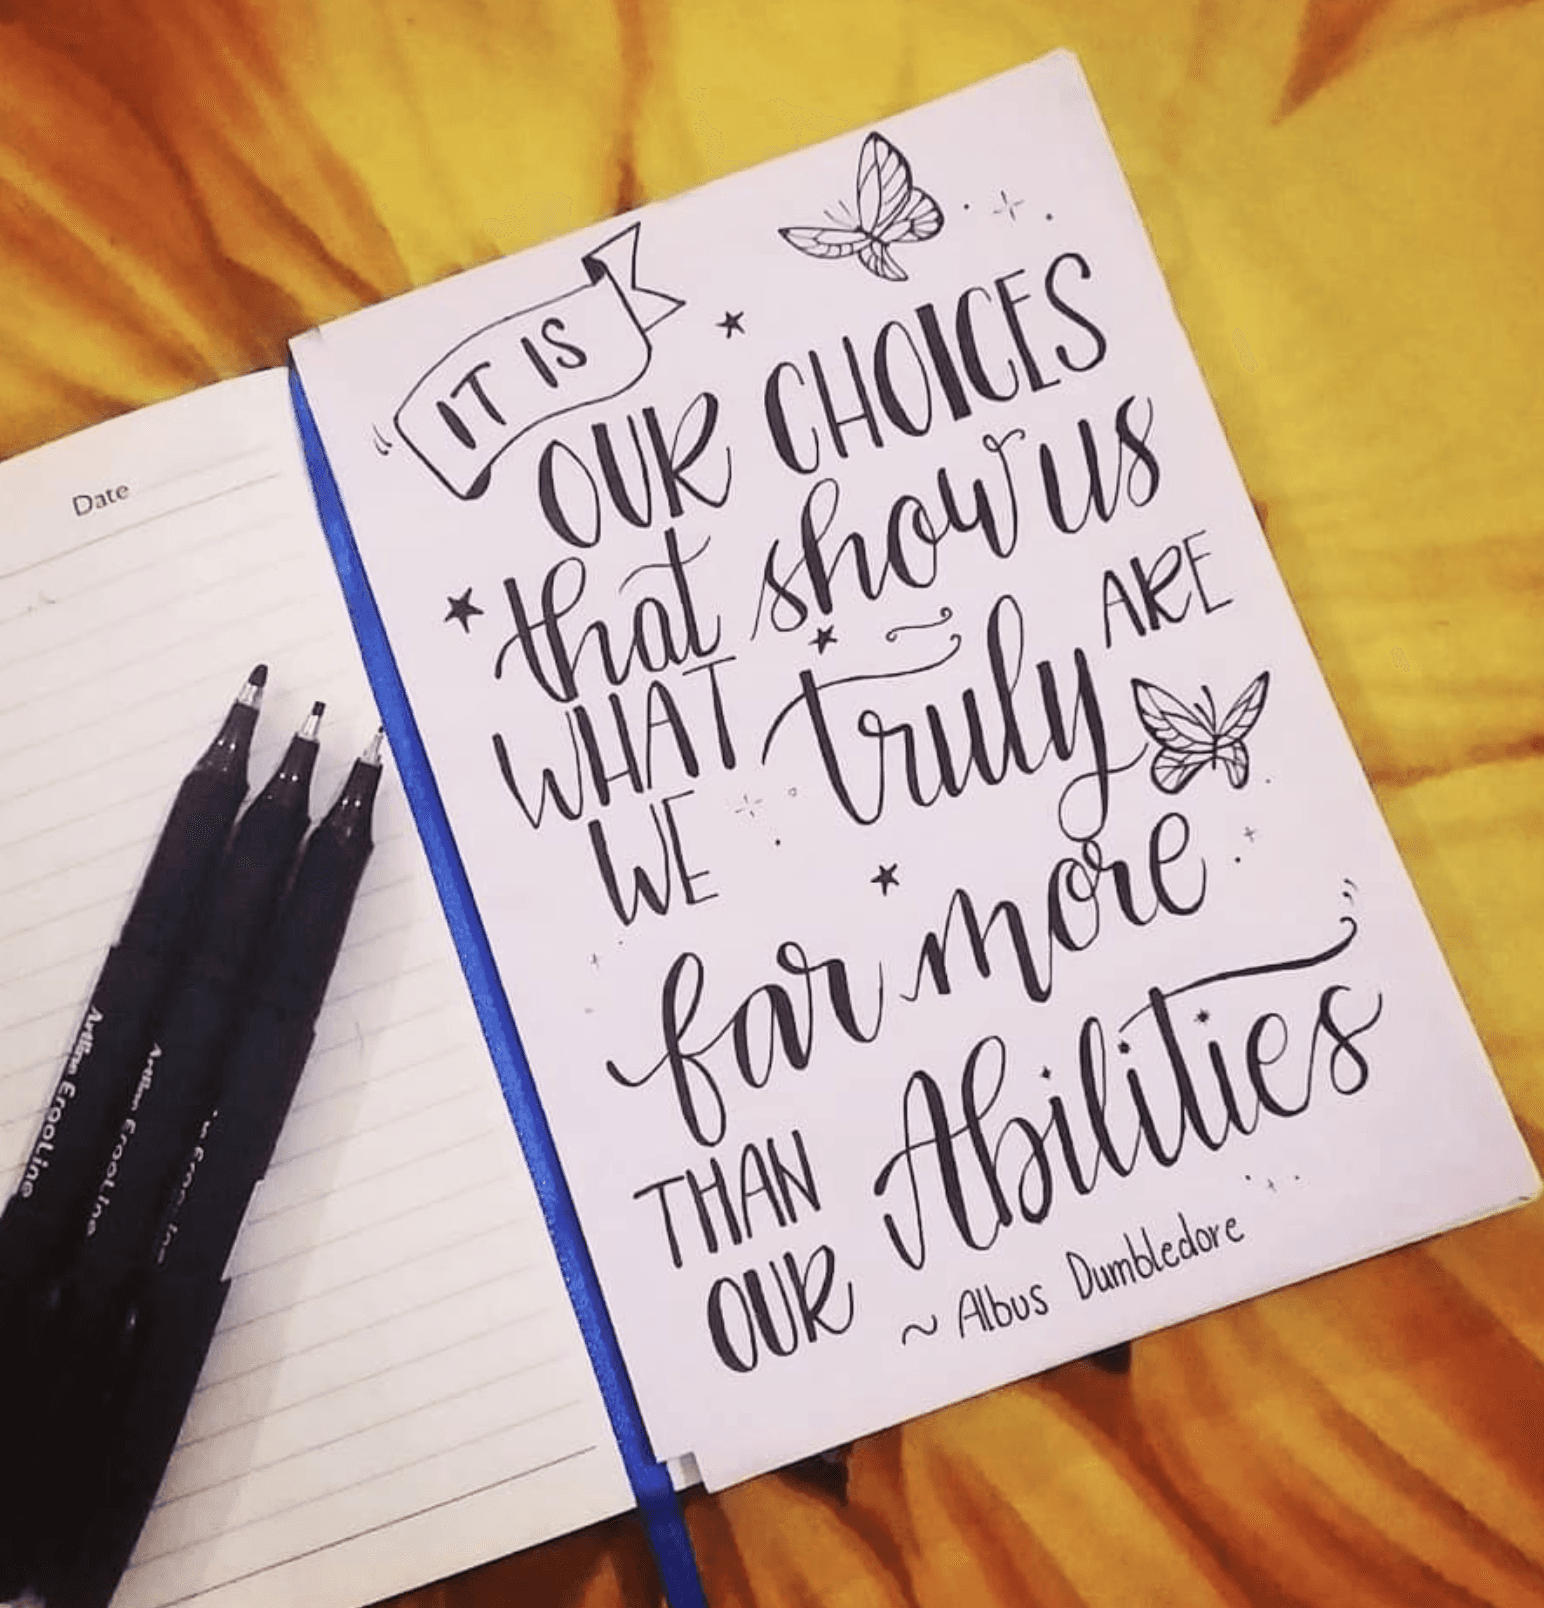 Date
IT IS
OUR CHOICES
that show us
WHAT truly ARE
WE
far more
THAN Abilities
OUR
~ Albus Dumbledore
Artline ErgoLine
Artline ErgoLine